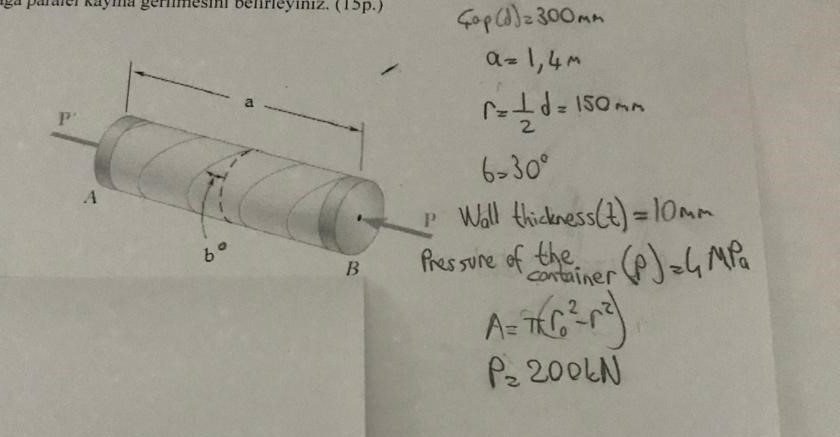 paralel kayma gerilmesini belirleyiniz. (15p.)
Çap(d)=300mm
a=1,4m
r=1/2 d=150mm
b=30°
Wall thickness(t)=10mm
Pressure of the container (p)=4 MPa
A=π(r₀²-r²)
P=200kN
a
P'
A
b°
P
B